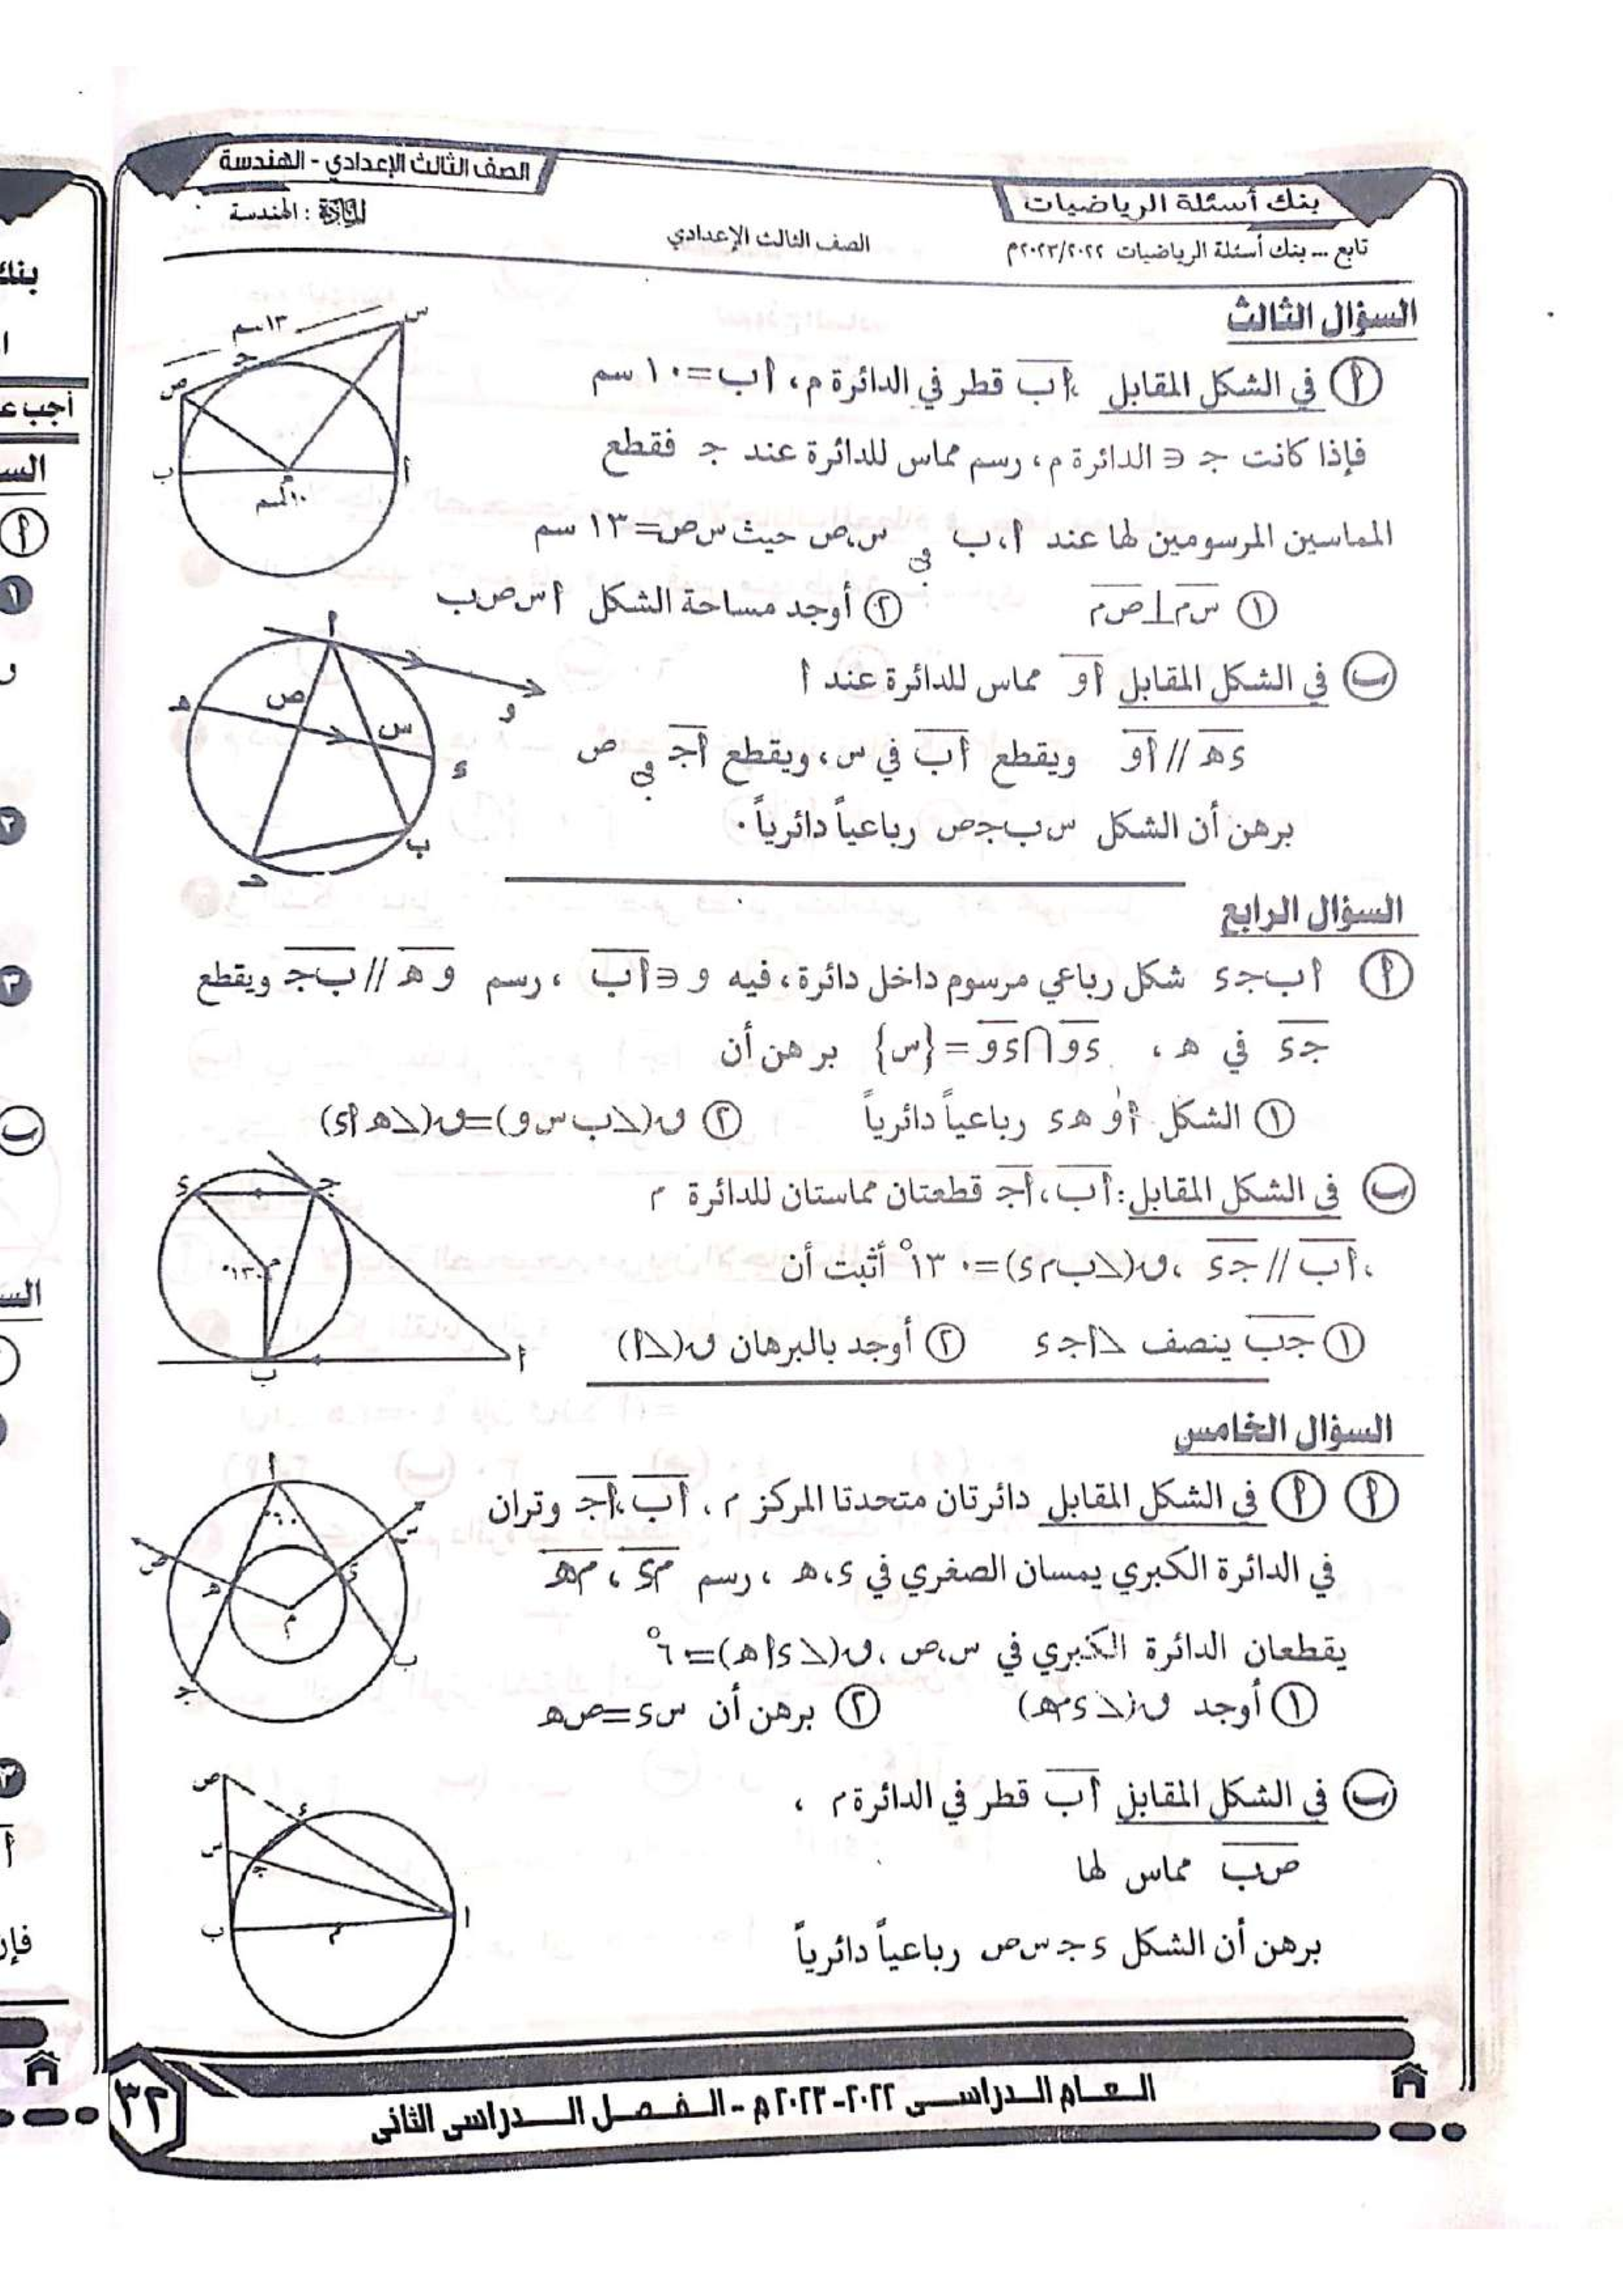 الصف الثالث الإعدادي - الهندسة
بنك أسئلة الرياضيات
المادة : الهندسة
الصف الثالث الإعدادي
تابع ... بنك أسئلة الرياضيات ٢٠٢٣/٢٠٢٢م
السؤال الثالث
أ في الشكل المقابل ، أب قطر في الدائرة م ، أب = ١٠ سم
فإذا كانت جـ ∈ الدائرة م ، رسم مماس للدائرة عند جـ فقطع
المماسين المرسومين لها عند أ ، ب في س ، ص حيث س ص = ١٣ سم
١ س م ⊥ ص م ٢ أوجد مساحة الشكل أ س ص ب
س
١٣ سم
جـ
ص
ب
أ
م
١٠ سم
ب في الشكل المقابل أو مماس للدائرة عند أ
ء هـ // أو ويقطع أب في س ، ويقطع أجـ في ص
برهن أن الشكل س ب جـ ص رباعياً دائرياً .
أ
هـ
ص
س
و
ء
ب
جـ
السؤال الرابع
أ أ ب جـ ء شكل رباعي مرسوم داخل دائرة ، فيه و ∈ أب ، رسم و هـ // ب جـ ويقطع
جـ ء في هـ ، ء و ∩ ء و = {س} برهن أن
١ الشكل أ و هـ ء رباعياً دائرياً ٢ ق(∠ب س و) = ق(∠هـ أ ء)
ب في الشكل المقابل : أب ، أجـ قطعتان مماستان للدائرة م
، أب // جـ ء ، ق(∠ب م ء) = ١٣٠° أثبت أن
١ جـ ب ينصف ∠أ جـ ء ٢ أوجد بالبرهان ق(∠أ)
ء
جـ
م
١٣٠°
ب
أ
السؤال الخامس
أ أ في الشكل المقابل دائرتان متحدتا المركز م ، أب ، أجـ وتران
في الدائرة الكبري يمسان الصغري في ء ، هـ ، رسم م ء ، م هـ
يقطعان الدائرة الكبري في س ، ص ، ق(∠ء أ هـ) = ٦°
١ أوجد ق(∠ء م هـ) ٢ برهن أن س ء = ص هـ
أ
س
ص
هـ
ء
م
ب
جـ
ب في الشكل المقابل أب قطر في الدائرة م ،
ص ب مماس لها
برهن أن الشكل ء جـ س ص رباعياً دائرياً
ص
ء
س
جـ
ب
م
أ
العام الدراسى ٢٠٢٢-٢٠٢٣م - الفصل الدراسى الثانى
٣٢
أجب